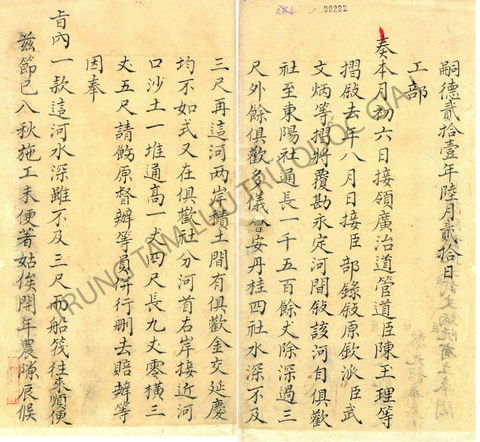 嗣德貳拾壹年陸月貳拾日
工部
奏本月初六日接領廣治道管道臣陳玉理等
摺敍去年八月日接臣部錄敍原欽派臣武
文炳等摺將覆勘永定河間敍該河自俱歡
社至東陽社通長一千五百餘丈除深過三
尺外餘俱歡多儀會安丹桂四社水深不及
三尺再這河兩岸攢土間有俱歡金交延慶
均不如式又在俱歡社分河首右岸接近河
口沙土一堆通高一丈四尺長九丈零橫三
丈五尺請飭原督辦等員併行刪去賠辦等
因奉
旨內一款這河水深雖不及三尺而船筏往來順便
茲節已八秋施工未便著姑俟開年農隙辰候
00282
TRUNG TÂM LƯU TRỮ QUỐC GIA